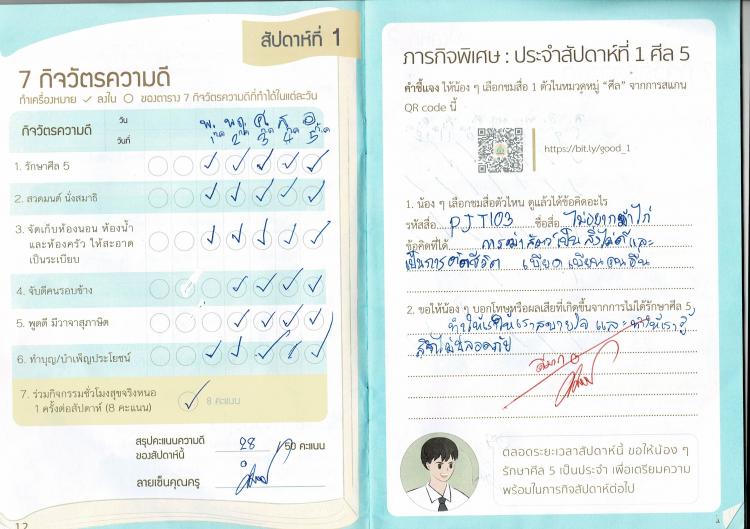 สัปดาห์ที่ 1
7 กิจวัตรความดี
ทำเครื่องหมาย ✓ ลงใน ○ ของตาราง 7 กิจวัตรความดีที่ทำได้ในแต่ละวัน
กิจวัตรความดี
วัน พ. พฤ. ศ. ส. อ
วันที่ 1 ก.ค 2 ก.ค 3 ก.ค 4 ก.ค 5 ก.ค
1. รักษาศีล 5
2. สวดมนต์ นั่งสมาธิ
3. จัดเก็บห้องนอน ห้องน้ำ
และห้องครัว ให้สะอาด
เป็นระเบียบ
4. จับดีคนรอบข้าง
5. พูดดี มีวาจาสุภาษิต
6. ทำบุญ/บำเพ็ญประโยชน์
7. ร่วมกิจกรรมชั่วโมงสุขจริงหนอ
1 ครั้งต่อสัปดาห์ (8 คะแนน)
8 คะแนน
สรุปคะแนนความดี
ของสัปดาห์นี้ 28 50 คะแนน
ลายเซ็นคุณครู
12
ภารกิจพิเศษ : ประจำสัปดาห์ที่ 1 ศีล 5
คำชี้แจง ให้น้อง ๆ เลือกชมสื่อ 1 ตัวในหมวดหมู่ “ศีล” จากการสแกน
QR code นี้
https://bit.ly/good_1
1. น้อง ๆ เลือกชมสื่อตัวไหน ดูแล้วได้ข้อคิดอะไร
รหัสสื่อ PJT103 ชื่อสื่อ ไม่อยากฆ่าไก่
ข้อคิดที่ได้ การฆ่าสัตว์เป็นสิ่งไม่ดีและ
เป็นการตัดชีวิต เบียดเบียนคนอื่น
2. ขอให้น้อง ๆ บอกโทษหรือผลเสียที่เกิดขึ้นจากการไม่ได้รักษาศีล 5
ทำให้เราไม่สบายใจ และทำให้เรารู้
สึกไม่ปลอดภัย
ดีมาก
ตลอดระยะเวลาสัปดาห์นี้ ขอให้น้อง ๆ
รักษาศีล 5 เป็นประจำ เพื่อเตรียมความ
พร้อมในภารกิจสัปดาห์ต่อไป